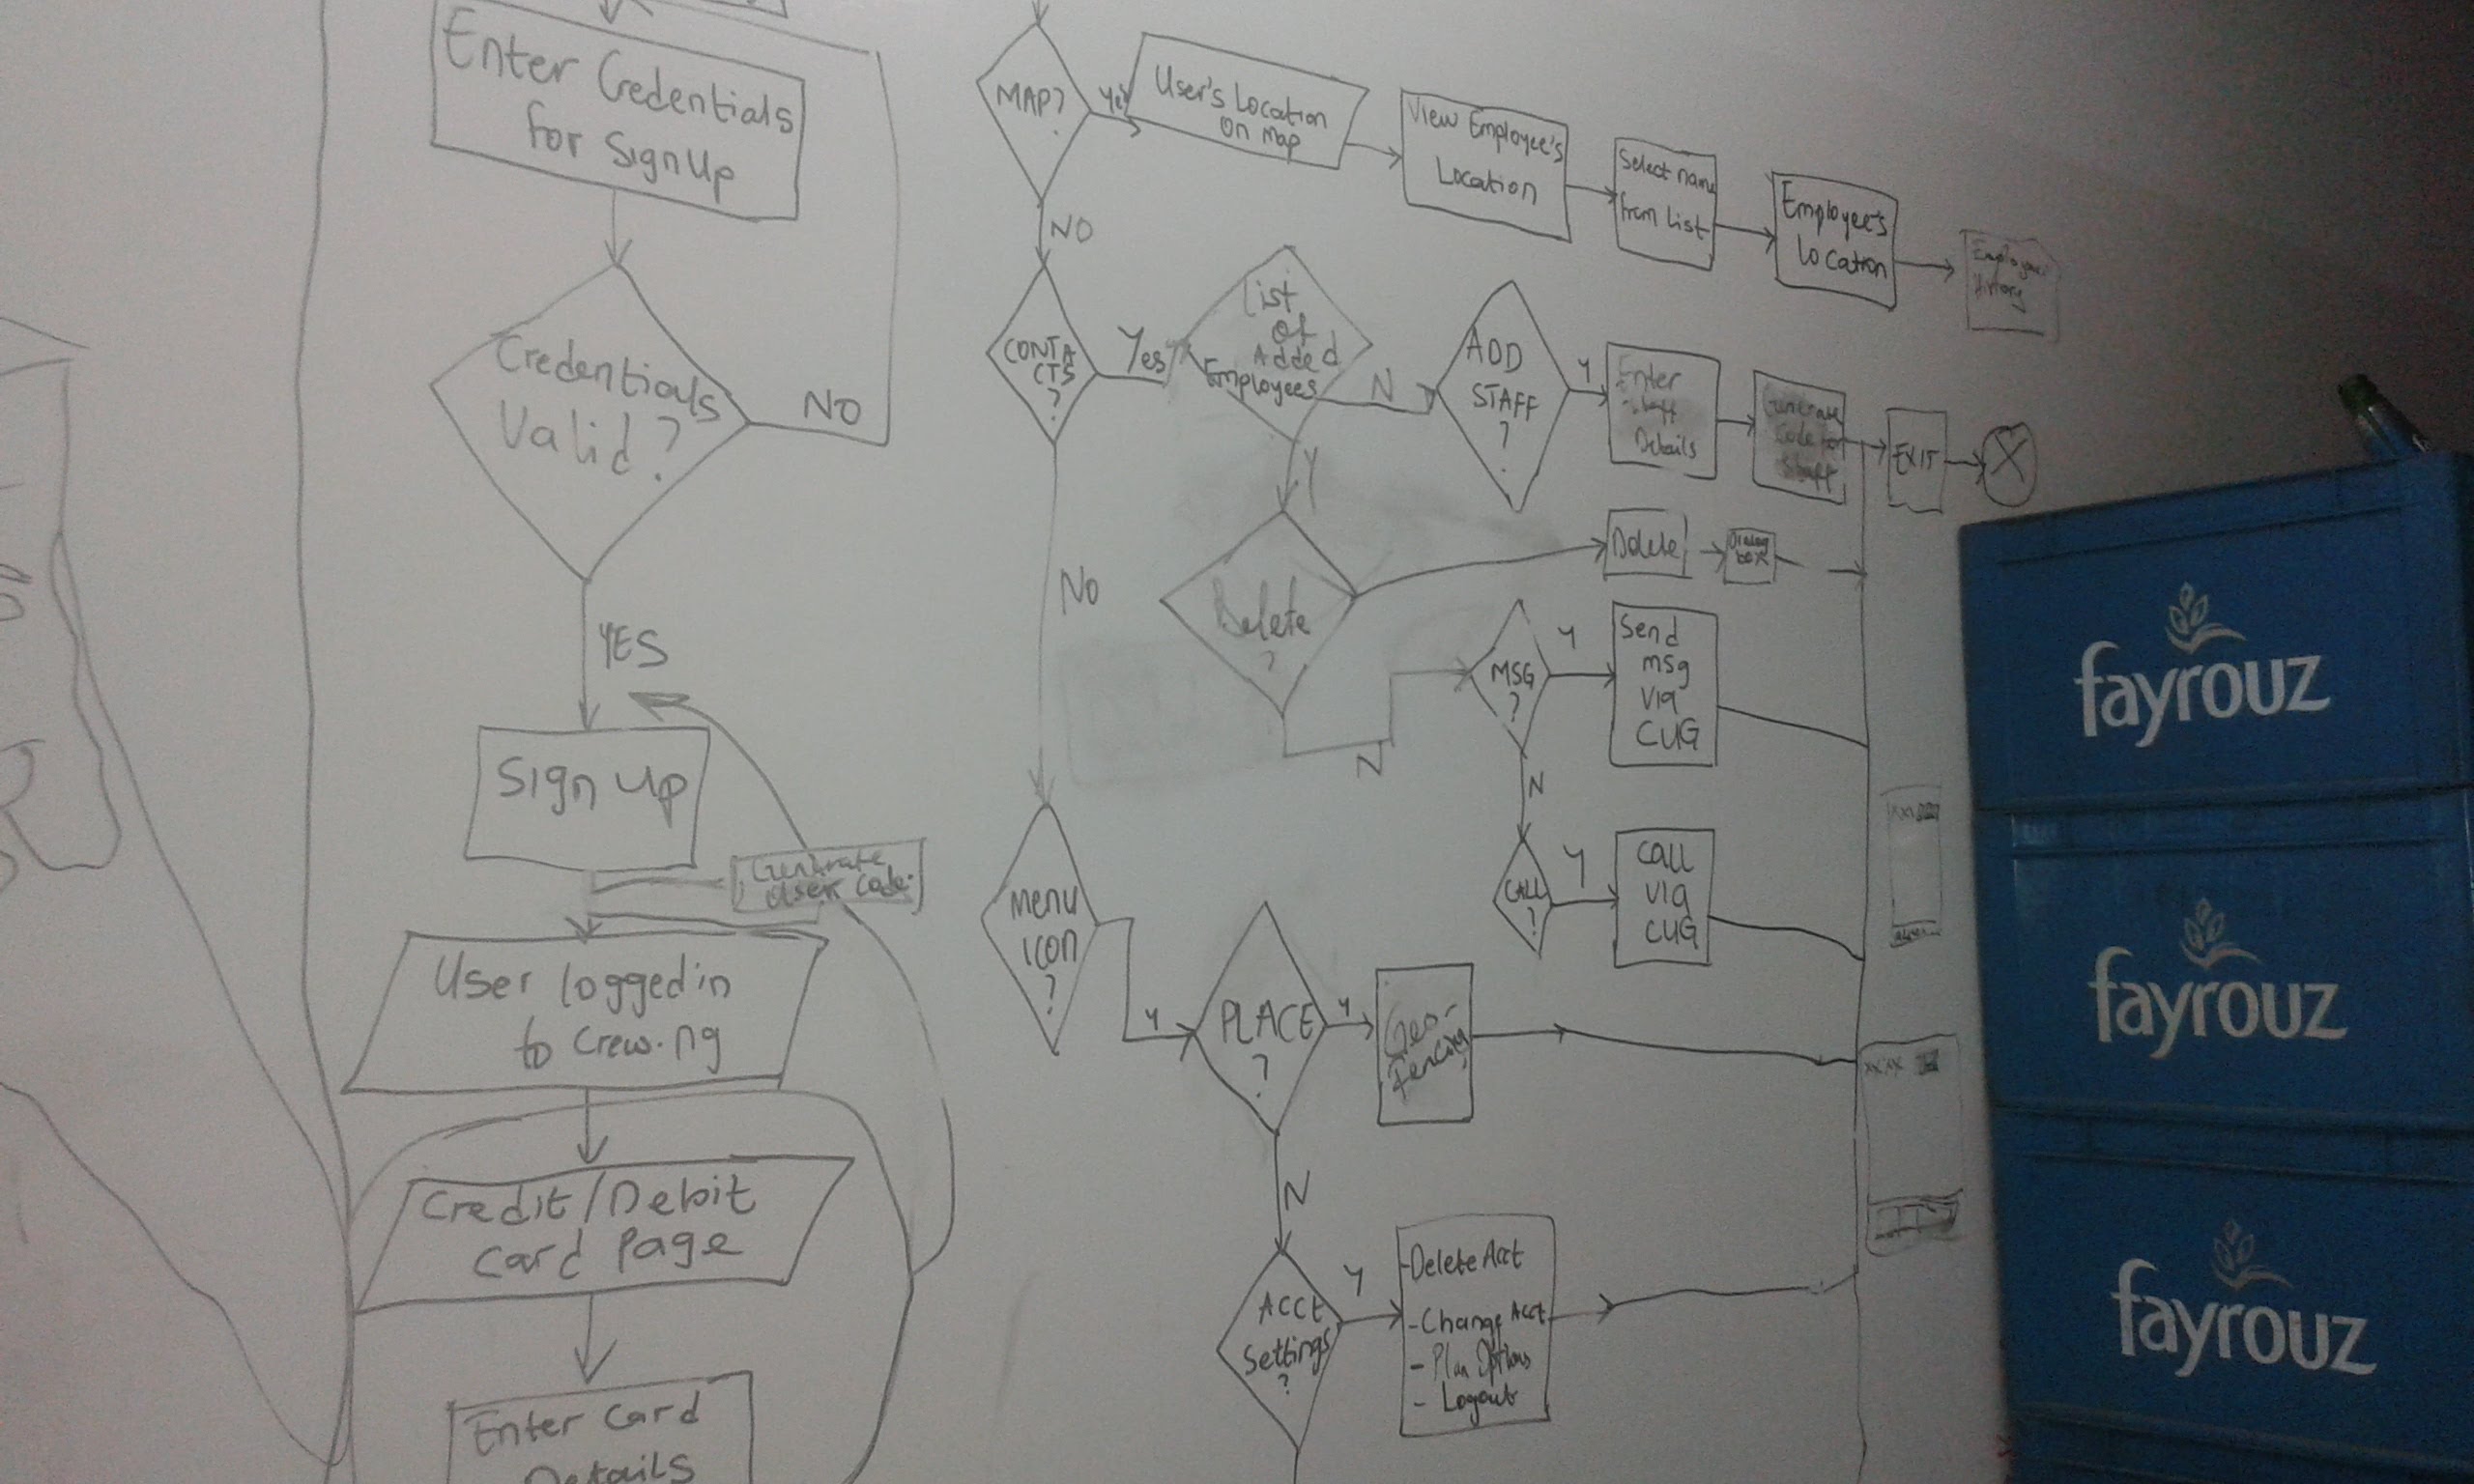 Enter Credentials
for SignUp
Credentials
Valid?
NO
YES
Sign up
Generate
User Code.
User logged in
to Crew.ng
Credit/Debit
Card Page
Enter Card
Details
MAP?
Yes
User's Location
On Map
View Employee's
Location
Select name
from List
Employee's
Location
Employee
History
NO
CONTA
CTS
?
Yes
List
of
Added
Employees
N
ADD
STAFF
?
Y
Enter
Staff
Details
Generate
Code for
Staff
EXIT
X
Y
NO
Delete
?
Delete
Dialog
box
N
MSG
?
Y
Send
msg
Via
CUG
N
CALL
?
Y
Call
Via
CUG
Menu
Icon
?
Y
PLACE
?
Y
Geo-
Fencing
N
Acct
Settings
?
Y
-Delete Acct
-Change Acct
- Plan Options
- Logout
fayrouz
fayrouz
fayrouz